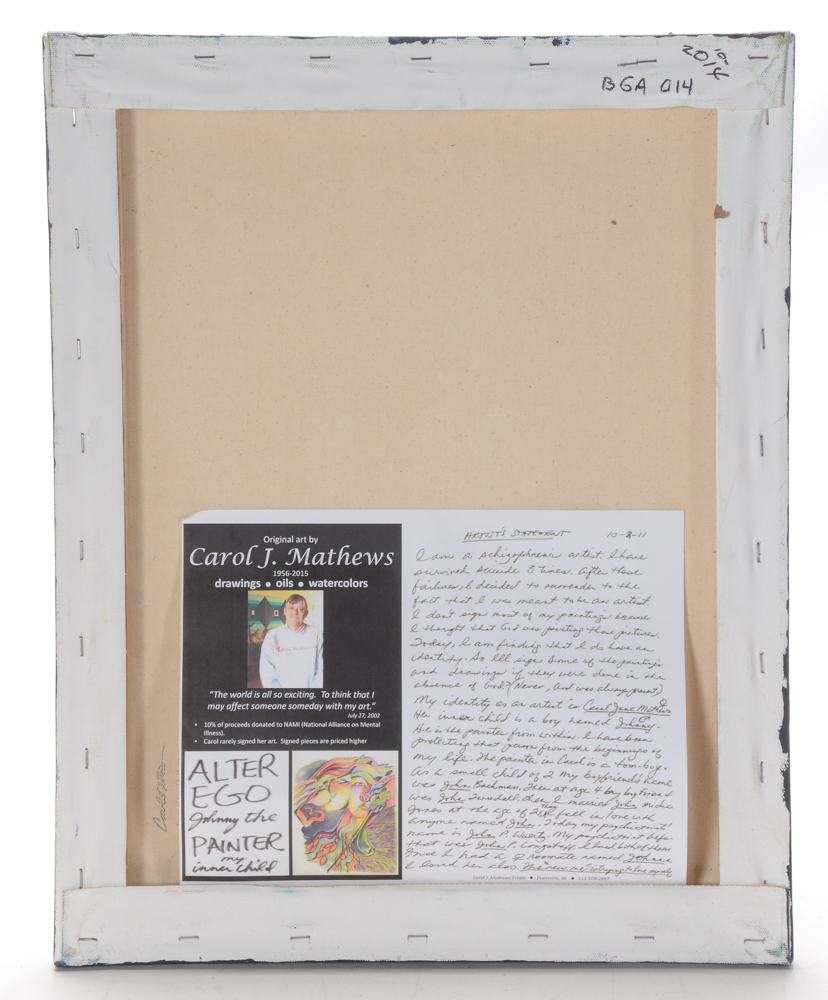 2014
BGA 014
Original art by
Carol J. Mathews
1956-2015
drawings • oils • watercolors
"The world is all so exciting. To think that I
may affect someone someday with my art."
July 27, 2002
• 10% of proceeds donated to NAMI (National Alliance on Mental
Illness).
• Carol rarely signed her art. Signed pieces are priced higher
ALTER
EGO
Johnny the
PAINTER
my
inner child
ARTIST'S STATEMENT 10-8-11
I am a schizophrenic artist. I have
survived suicide 3 times. After those
failures, I decided to surrender to the
fact that I was meant to be an artist.
I don't sign most of my paintings because
I thought that God was painting those pictures.
Today, I am finding that I do have an
identity. So I'll sign some of the paintings
and drawings if they were done in the
absence of God? (Never, God was always present)
My identity as an artist is Carol Jane Mathews
Her inner child is a boy named Johnny.
He is the painter from within. I have been
protecting that from the beginnings of
my life. The painter in Carol is a tom-boy.
As a small child of 2 my boyfriend's name
was John Bachman, then at age 4 boy friend
was John then I married John
Jones at the age of fall in love with
anyone named John. Today my psychiatrist's
name is John P. My psychiatrist before
that was John P. I loved both of them
Once I had a roommate named
I loved her also. The new me is
Carol J. Mathews Estate •